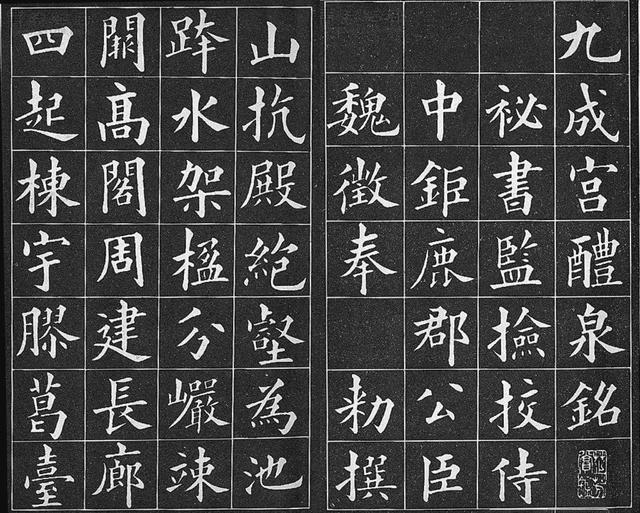 九成宮醴泉銘
祕書監撿挍侍
中鉅鹿郡公臣
魏徵奉 勅撰
山抗殿絶壑為池
跨水架楹分巖竦
闕髙閣周建長廊
四起棟宇膠葛臺